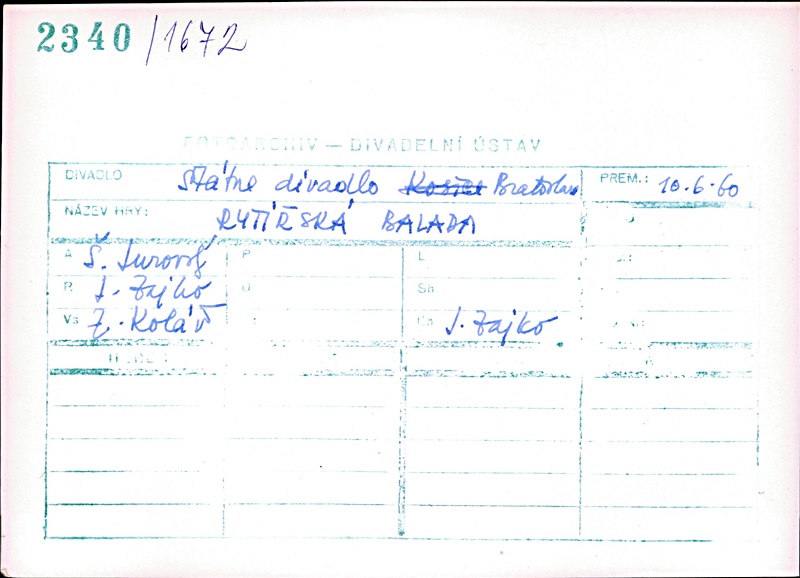 2340 /1672
FOTOARCHIV — DIVADELNÍ ÚSTAV
DIVADLO Státne divadlo Košice Bratislava PREM.: 10.6.60
NÁZEV HRY: RYTÍŘSKÁ BALADA
A Š. Jurový P L
R J. Zajko U Sh
Vs Z. Kolář J. Zajko